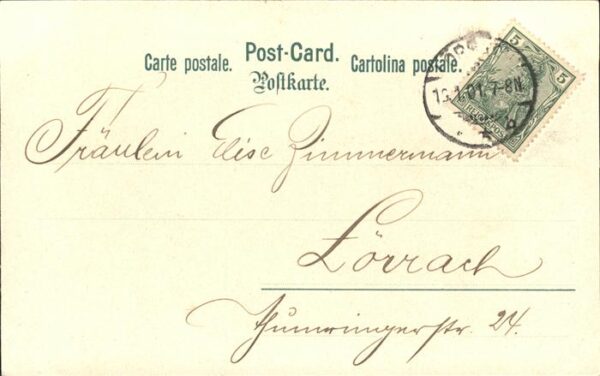 Carte postale. Post-Card. Cartolina postale.
Postkarte.
5 5
REICHSPOST
1.01.7-8N.
Fräulein Elise Zimmermann
Lörrach
Thumringerstr. 24.